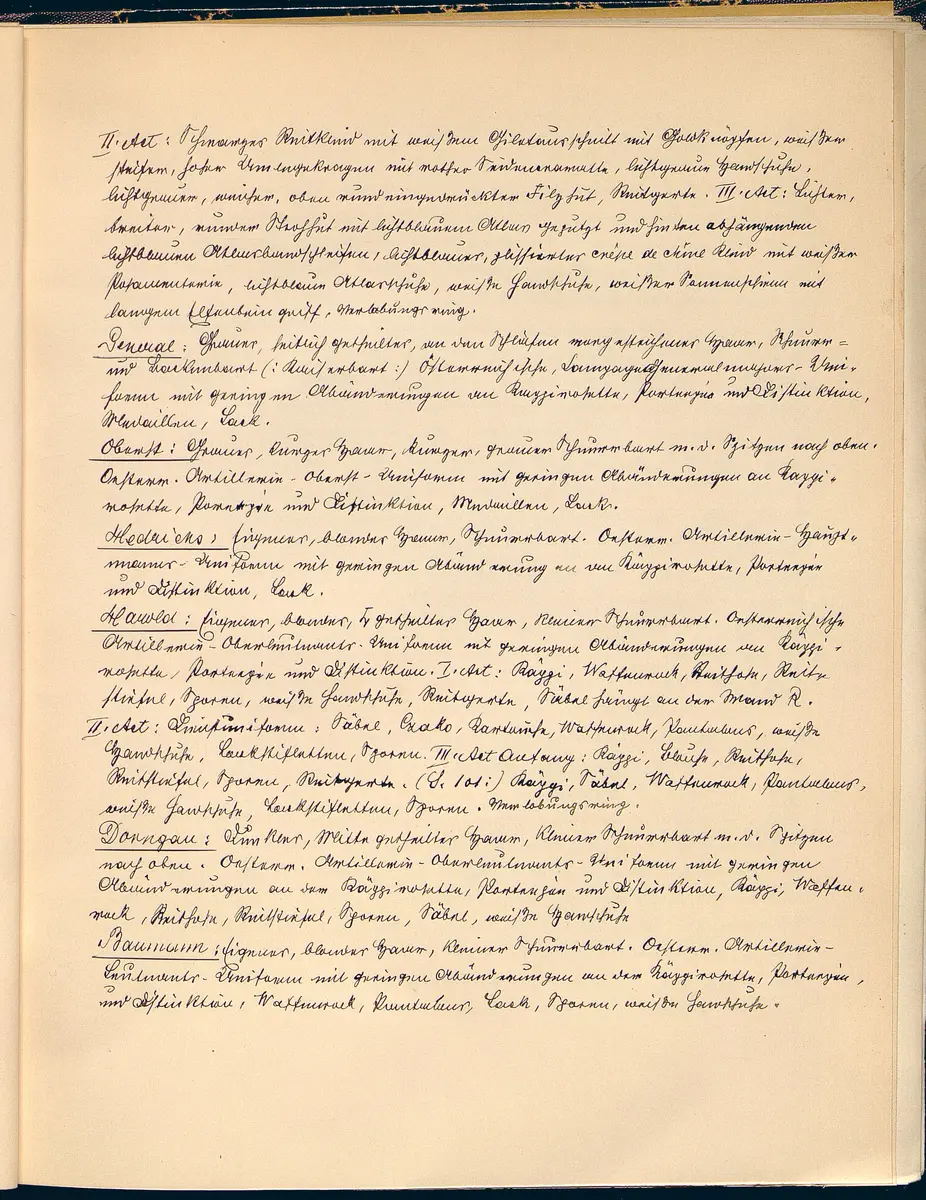 II. Act: Schwarzes Reitkleid mit weißem Giletausschnitt mit Goldknöpfen, weißer
steifer, hoher Umlegekragen mit rother Seidencravatte, lichtgraue Handschuhe,
lichtgrauer, weicher, oben rund eingedrückter Filzhut, Reitgerte. III. Act: Lichter,
breiter, runder Strohhut mit lichtblauem Atlas geputzt und hinten abhängenden
lichtblauen Atlasbandschleifen, lichtblaues, plissiertes crêpe de chine Kleid mit weißer
Posamenterie, lichtblaue Atlasschuhe, weiße Handschuhe, weißer Sonnenschirm mit
langem Elfenbeingriff, Verlobungsring.
General: Graues, seitlich getheiltes, an den Schläfen vorgestrichenes Haar, Schnurr=
und Backenbart (: Kaiserbart :) Österreichische, Campagne Generalmajors- Uni-
form mit geringen Abänderungen an Käppirosette, Portepée und Distinktion,
Medaillen, Lack.
Oberst: Graues, kurzes Haar, kurzer, grauer Schnurrbart m. d. Spitzen nach oben.
Oesterr. Artillerie- Oberst- Uniform mit geringen Abänderungen an Käppi-
rosette, Portepée und Distinktion, Medaillen, Lack.
Hedrichs: Eigenes, blondes Haar, Schnurrbart. Oesterr. Artillerie- Haupt-
manns- Uniform mit geringen Abänderung en an Käppirosette, Portepée
und Distinktion, Lack.
Harold: Eigenes, blondes, getheiltes Haar, kleiner Schnurrbart. Oesterreichische
Artillerie- Oberleutnants- Uniform mit geringen Abänderungen an Käppi-
rosette, Portepée und Distinktion. I. Act: Käppi, Waffenrock, Reithose, Reit=
stiefel, Sporen, weiße Handschuhe, Reitgerte, Säbel hängt an der Wand R.
II. Act: Dienstuniform: Säbel, Czako, Kartusche, Waffenrock, Pantalons, weiße
Handschuhe, Lackstifletten, Sporen. III. Act Anfang: Käppi, Blouse, Reithose,
Reitstiefel, Sporen, Reitgerte. (S. 101:) Käppi, Säbel, Waffenrock, Pantalons,
weiße Handschuhe, Lackstifletten, Sporen. Verlobungsring.
Dorngau: Dunkles, Mitte getheiltes Haar, kleiner Schnurrbart m. d. Spitzen
nach oben. Oesterr. Artillerie- Oberleutnants- Uniform mit geringen
Abänderungen an der Käppirosette, Portepée und Distinktion, Käppi, Waffen-
rock, Reithose, Reitstiefel, Sporen, Säbel, weiße Handschuhe
Baumann: Eigenes, blondes Haar, kleiner Schnurrbart. Oesterr. Artillerie-
Leutnants- Uniform mit geringen Abänderungen an der Käppirosette, Portepée,
und Distinktion, Waffenrock, Pantalons, Lack, Sporen, weiße Handschuhe.